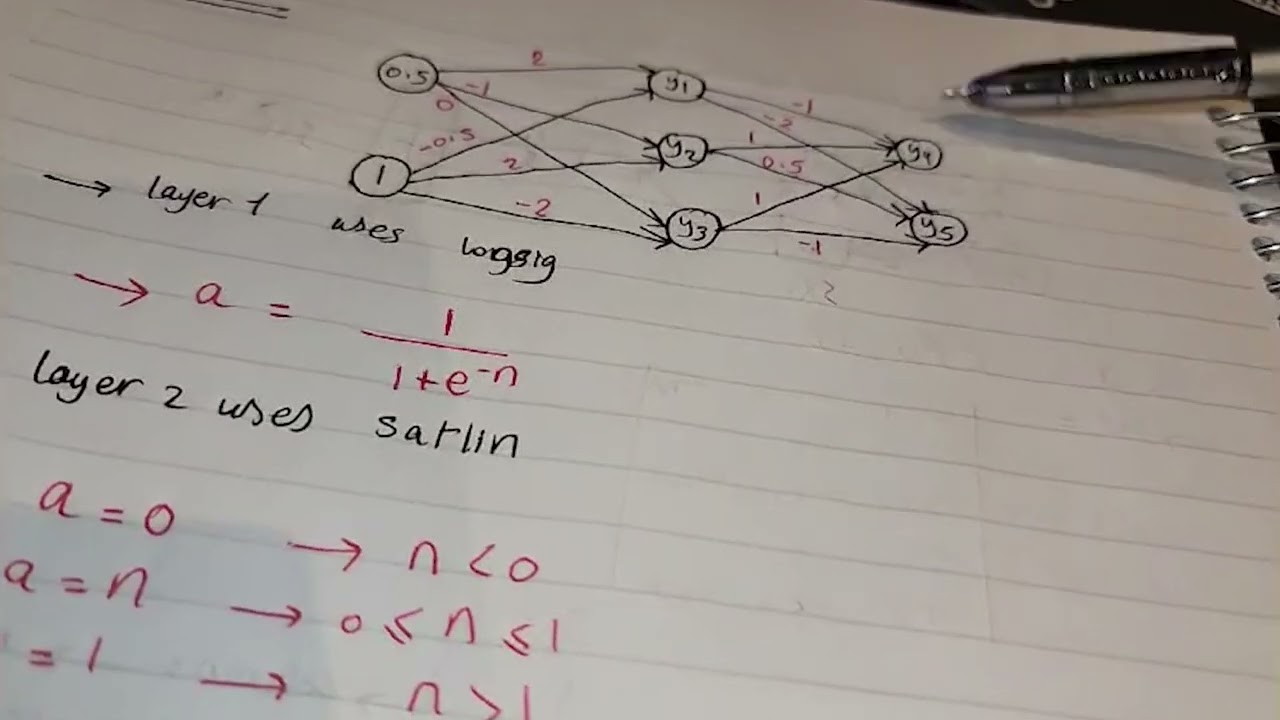 0.5 2 y1 -1
-1 -2
0 1 y4
-0.5 y2 0.5
1 2 1
-2 y3 -1 y5
→ layer 1 uses logsig
→ a = 1 / 1+e^-n
layer 2 uses satlin
a = 0 → n < 0
a = n → 0 ≤ n ≤ 1
= 1 → n > 1